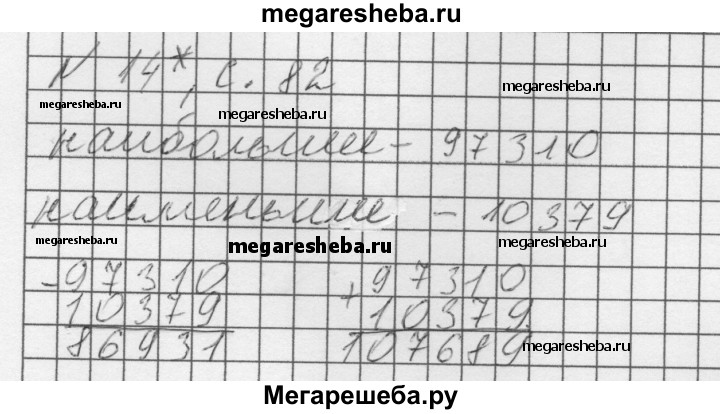 megaresheba.ru
N 14*, с. 82
megaresheba.ru megaresheba.ru megaresheba.ru
наибольшее - 97310
наименьшее - 10379
megaresheba.ru megaresheba.ru megaresheba.ru
- 97310 + 97310
10379 10379
86931 107689
megaresheba.ru
Мегарешеба.ру